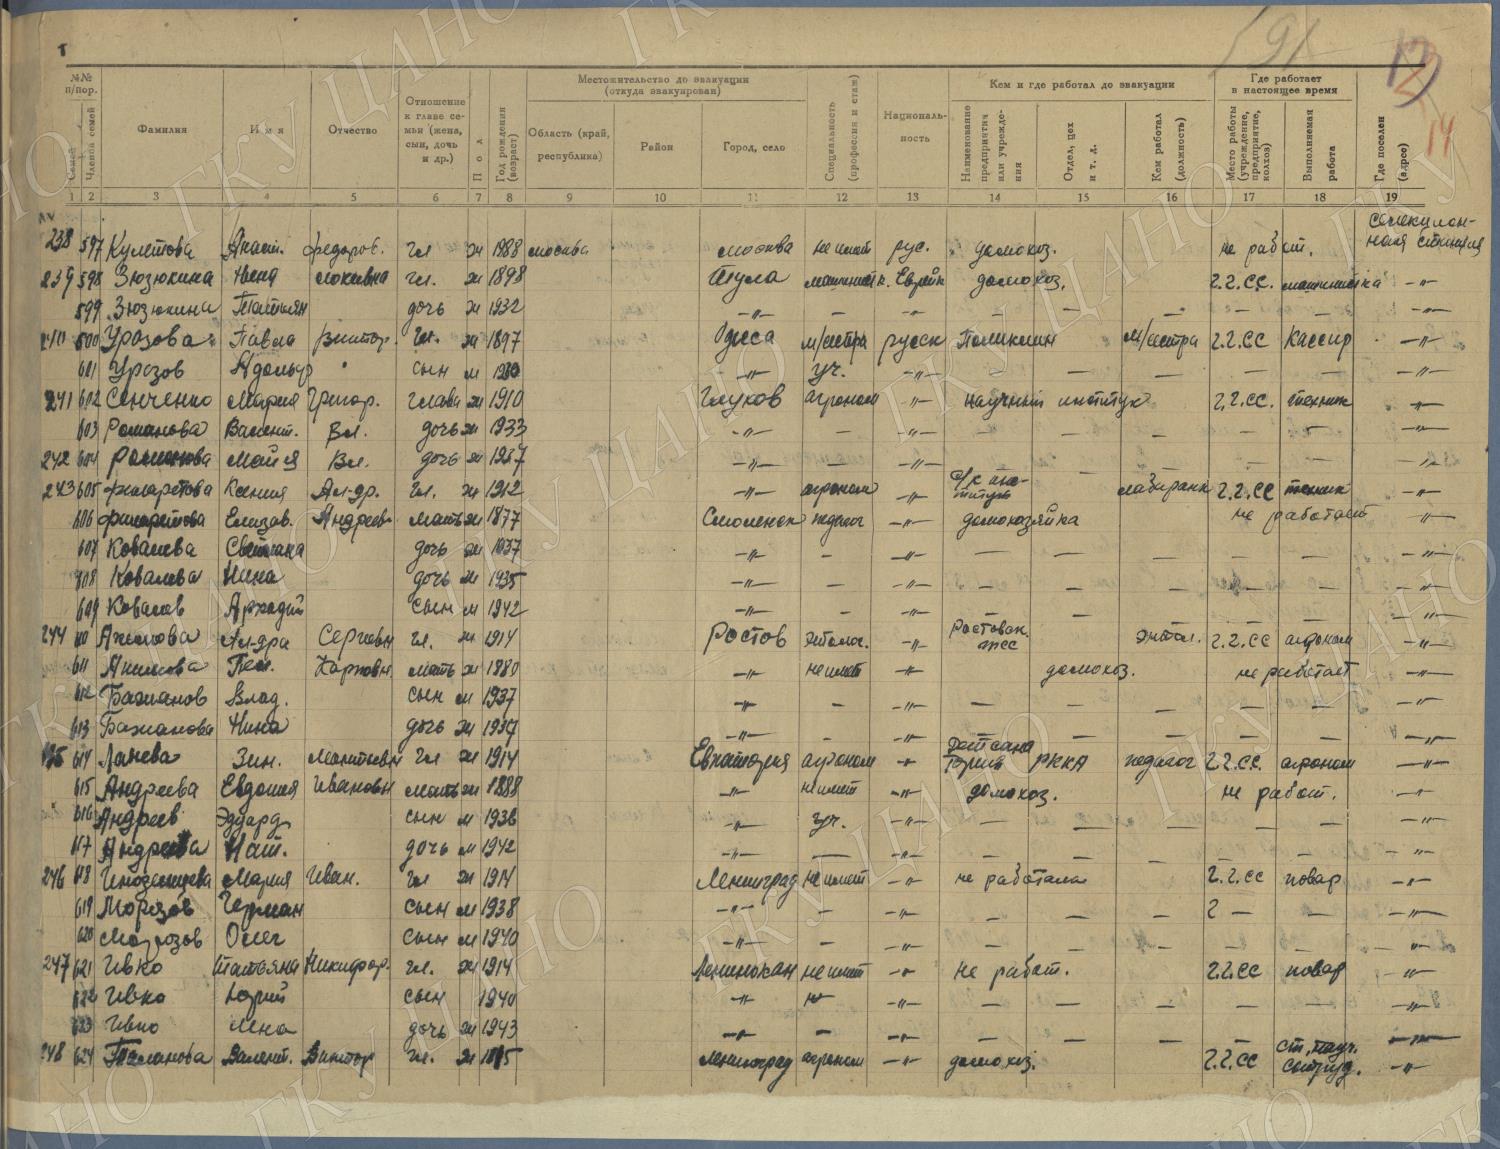 91
12
14
№№ п/пор.
Семей
Членов семей
Фамилия
Имя
Отчество
Отношение к главе семьи (жена, сын, дочь и др.)
Пол
Год рождения (возраст)
Местожительство до эвакуации (откуда эвакуирован)
Область (край, республика)
Район
Город, село
Специальность (профессия и стаж)
Националь-ность
Кем и где работал до эвакуации
Наименование предприятия или учреждения
Отдел, цех и т. д.
Кем работал (должность)
Где работает в настоящее время
Место работы (учреждение, предприятие, колхоз)
Выполняемая работа
Где поселен (адрес)
1 2 3 4 5 6 7 8 9 10 11 12 13 14 15 16 17 18 19
238 597 Кулешова Анаст. Федоров. гл ж 1888 москва москва не имеет рус. домохоз. не работ. станция
239 598 Зюзюкина гл. ж 1898 Тула домохоз. Г.Г.СС. машинистка -"-
599 Зюзюкина Татьян дочь ж 1932 -"- — — — — — — -"-
240 600 Урозова Павла Виктор. гл. ж 1897 Одесса м/сестра русск Поликлин м/сестра Г.Г.СС кассир -"-
601 Урозов Адольф сын м 1930 -"- уч. -"- — — — — — -"-
241 602 Сенченко Мария Григор. глава ж 1910 Глухов агроном -"- научный институт Г.Г.СС. техник -"-
603 Романова Валент. Вл. дочь ж 1933 -"- — -"- — — — — — -"-
242 604 Романова Майя Вл. дочь ж 1937 -"- — -"- — — — — — -"-
243 605 Филаретова Ксения Ал-др. гл. ж 1912 -"- агроном -"- лаборант Г.Г.СС техник -"-
606 Филаретова Елизав. Андреев. мать ж 1877 Смоленск педагог -"- домохозяйка не работает -"-
607 Ковалева Светлана дочь ж 1937 -"- — -"- — — — — — -"-
608 Ковалева Нина дочь ж 1935 -"- — -"- — — — — — -"-
609 Ковалев Аркадий сын м 1942 -"- — -"- — — — — — -"-
244 610 Акимова Ал-дра Сергеевн гл. ж 1914 Ростов энтомолог. -"- Ростовск. энтом. Г.Г.СС агроном -"-
611 Акимова Карповн. мать ж 1880 -"- не имеет -"- домохоз. не работает -"-
612 Бажанов Влад. сын м 1937 -"- — -"- — — — — — -"-
613 Бажанова Нина дочь ж 1937 -"- — -"- — — — — — -"-
614 Зин. гл ж 1914 Евпатория агроном -"- РККА педагог Г.Г.СС. агроном -"-
615 Андреева Евдокия Ивановн мать ж 1888 -"- не имеет -"- домохоз. не работ. -"-
616 Андреев Эдуард сын м 1936 -"- уч. -"- — — — — — -"-
617 Андреева Нат. дочь м 1942 -"- — -"- — — — — — -"-
246 618 Иноземцева Мария Иван. гл ж 1914 Ленинград не имеет -"- не работала Г.Г.СС повар -"-
619 Морозов Герман сын м 1938 -"- — -"- — — — Г — — -"-
620 Морозов Олег сын м 1940 -"- — -"- — — — — — -"-
247 621 Ивко Татьяна Никифор. гл. ж 1914 Ленинакан не имеет -"- не работ. Г.Г.СС повар -"-
622 Ивко Юрий сын 1940 -"- -"- — — — — — -"-
623 Ивко дочь ж 1943 -"- — -"- — — — — — -"-
248 624 Валент. Виктор гл. ж Ленинград агроном -"- домохоз. Г.Г.СС ст. науч. сотруд. -"-
ГКУ ЦАНО